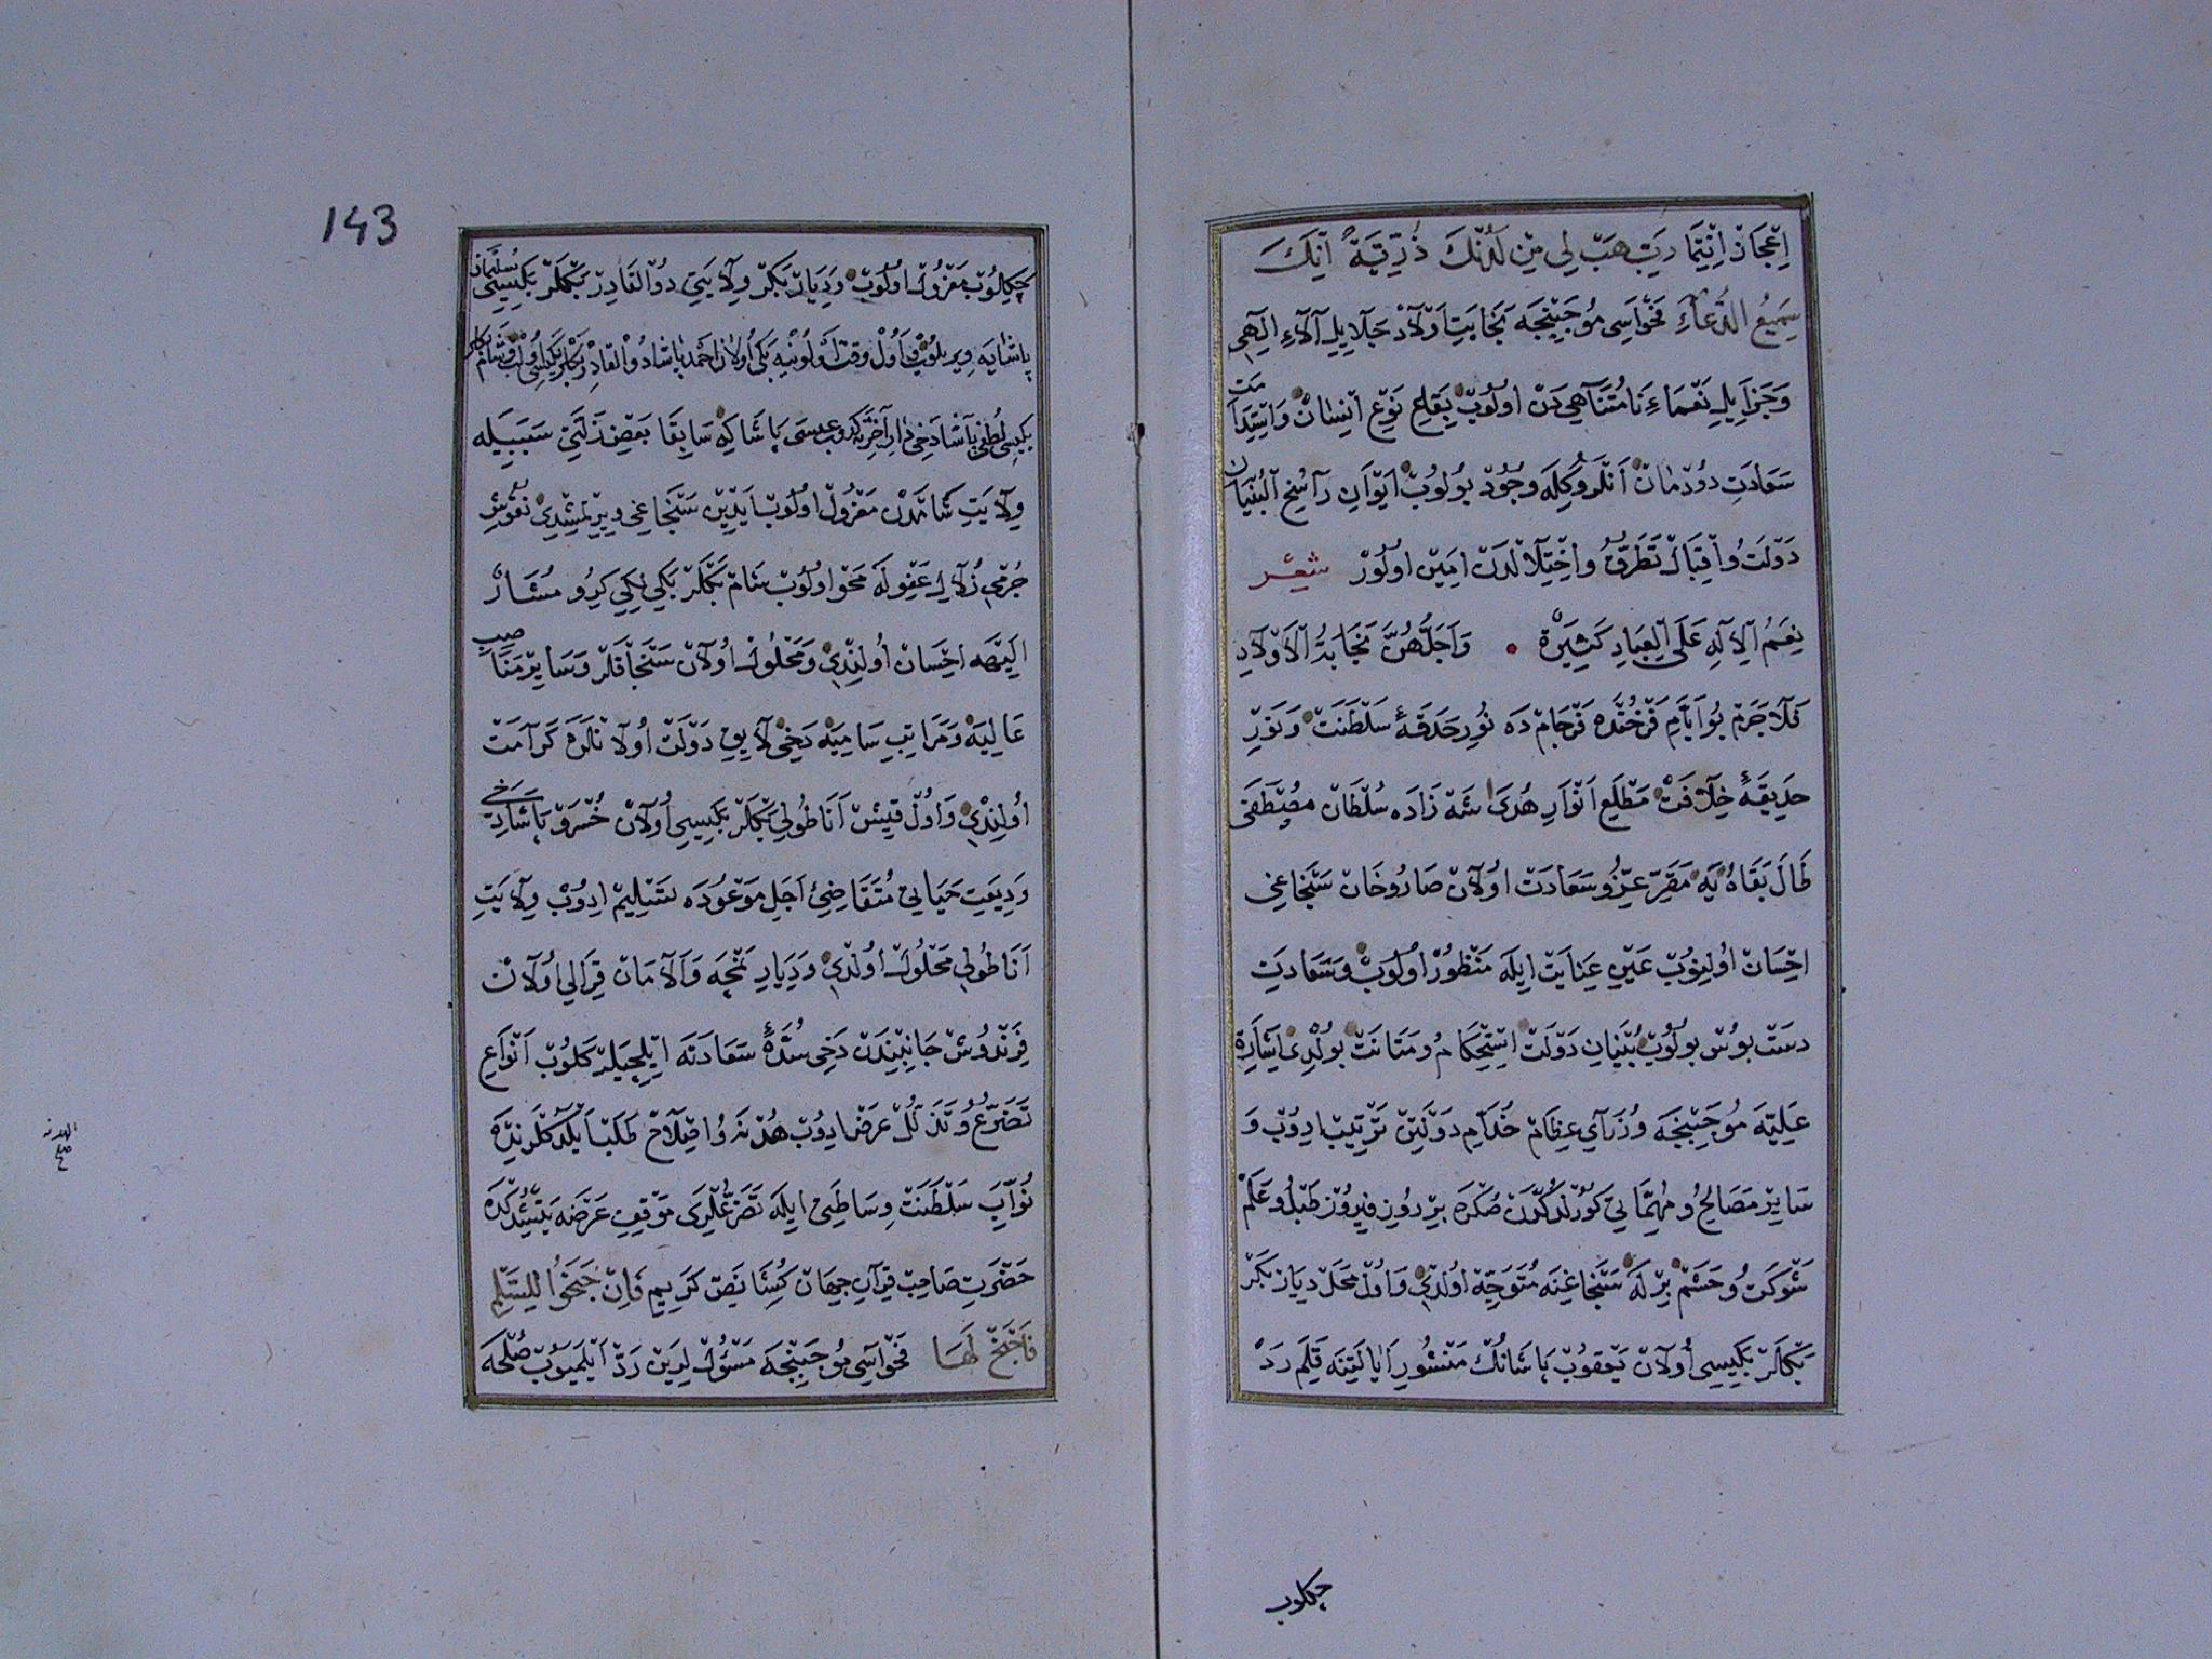 اِعْجَاز اِنْتِمَا رَبِّ هَبْ لِي مِنْ لَدُنْكَ ذُرِّيَّةً اِنَّكَ
سَمِيعُ الدُّعَاءِ فَحْوَاسِي مُوجِبِنْجَه نَجَابَتِ اَوْلَادْ جَلَايِلِ آلَاءِ اِلٰهِي
وَجَزَايِلِ نَعْمَاءِ نَامُتَنَاهِي دَنْ اولُوبْ بَقَاءِ نَوْعِ اِنْسَانْ وَاسْتِدَامَتِ
سَعَادَتِ دُودْمَانْ اَنْلَروُكِلَه وُجُودْ بُولُوبْ اَيْوَانِ رَاسِخُ الْبُنْيَانِ
دَوْلَتُ وَاِقْبَالْ تَطَرُّقُ وَاخْتِلَالْدَنْ اَمِينْ اولُورْ شعر
نِعَمُ الْاِلٰهِ عَلَى الْعِبَادِ كَثِيرَةٌ وَاَجَلُّهُنَّ نَجَابَةُ الْاَوْلَادِ
فَلَاجَرَمْ بُو اَيَّامِ فَرْخُنْدَه فَرْجَامْ دَه نُورِ حَدَقَهٔ سَلْطَنَتْ وَنَوْرِ
حَدِيقَهٔ خِلَافَتْ مَطْلَعِ اَنْوَارِ هُدَىٰ شَهْ زَادَه سُلْطَانْ مُصْطَفَى
طَالَ بَقَاهُ يَه مَقَرِّ عِزُّ وسَعَادَتْ اولَانْ صَارُوخَانْ سَنْجَاغِي
اِحْسَانْ اولِنوُبْ عَيْنِ عِنَايَتْ اِيلَه مَنْظُورْ اولُوبْ وَسَعَادَتِ
دَسْت بُوسْ بُولُوبْ بُنْيَانِ دَوْلَتْ اِسْتِحْكَامُ ومَتَانَتْ بُولْدِي اِشَارَهٔ
عَلِيَّه مُوجِبِنْجَه وُزَرَايِ عِظَامْ خُدَّامِ دَوْلَتِنْ تَرْتِيبْ ادِوُبْ وَ
سَايِرْ مَصَالِحُ ومُهِمَّاتِي كُورُلْدُكْدَنْ صُكْرَه بِرْ رُوزِ فِيرُوزْ طَبْلُ وعَلَمْ
شَوْكَتُ وحَشَمْ بِرْ لَه سَنْجَاغِنَه مُتَوَجِّهْ اولْدِي وَاولْ مَحَلْ دِيَارْ بَكْرْ
بَكْلَرْ بَكِيسِي اولَانْ يَعْقُوبْ پَاشَانُكْ مَنْشُورِ اَيَالَتِنَه قَلَمِ رَدْ
چكلوب
143
چَكِلُوبْ مَعْزُولْ اولُوبْ وَدِيَارْ بَكْرْ وِلَايَتِي ذُو الْقَادِرْ بَكْلَرْ بَكِيسِي سُلَيْمَانْ
پَاشَايَه وِيرِيلُوبْ اولْ وَقْتْ بَكِي اولَانْ اَحْمَدْ پَاشَا ذُو الْقَادِرْ بَكْلَرْ بَكِيسِي اولُوبْ وَشَامْ بكلر
بَكِيسِي لُطْفِي پَاشَا دَخِي دَارِ آخِرَتَه كِدُوبْ عِيسَى پَاشَا كِه سَابِقَا بَعْضِ زَلَّتِي سَبَبِيلَه
وِلَايَتِ شَامْدَنْ مَعْزُولْ اولُوبْ اَيْدِينْ سَنْجَاغِي وِيرِلْمِشْدِي نُقُوشِ
جُرْمِي زُلَالِ عَفْوِ لَه مَحْوْ اولُوبْ شَامْ بَكْلَرْ بَكِي لِكِي كِيرُو مُشَارٌ
اِلَيْهَه اِحْسَانْ اولِنْدِي وَمَحْلُولْ اولَانْ سَنْجَاقْلَرْ وَسَايِرْ مَنَاصِبِ
عَالِيَه وَمَرَاتِبِ سَامِيَه دَخِي لَايِقِ دَوْلَتْ اولَانْلَرَه كَرَامَتْ
اولِنْدِي وَاولْ قِيشْ اَنَاطُولِي بَكْلَرْ بَكِيسِي اولَانْ خُسْرَوْ پَاشَا دَخِي
وَدِيعَتِ حَيَاتِي مُتَقَاضِئِ اَجَلِ مَوْعُودَه تَسْلِيمْ ادِوُبْ وِلَايَتِ
اَنَاطُولِي مَحْلُولْ اولْدِي وَدِيَارِ نَمْچَه وَاَلَامَانْ قِرَالِي اولَانْ
فِرَنْدُوشْ جَانِبِنْدَنْ دَخِي سُدَّهٔ سَعَادَتَه اِيلْچِيلَرْ كَلُوبْ اَنْوَاعِ
تَضَرُّعُ وتَذَلُّلْ عَرْضْ ادِوُبْ هُدْنَه وَاصْلَاحْ طَلَبْ اَيْلَدُكْلَرِنْدَه
نُوَّابِ سَلْطَنَتْ وِسَاطَتِي اِيلَه تَضَرُّعْلَرِي مَوْقِفِ عَرْضَه يَتِشْدُكْدَه
حَضْرَتِ صَاحِبْ قِرَانِ جِهَانْ كُشَا نَصِّ كَرِيمِ فَاِنْ جَنَحُوا لِلسَّلْمِ
فَاجْنَحْ لَهَا فَحْوَاسِي مُوجِبِنْجَه مَسْئُولْ لَرِينْ رَدّْ اَيْلَمَيُوبْ صُلْحَه